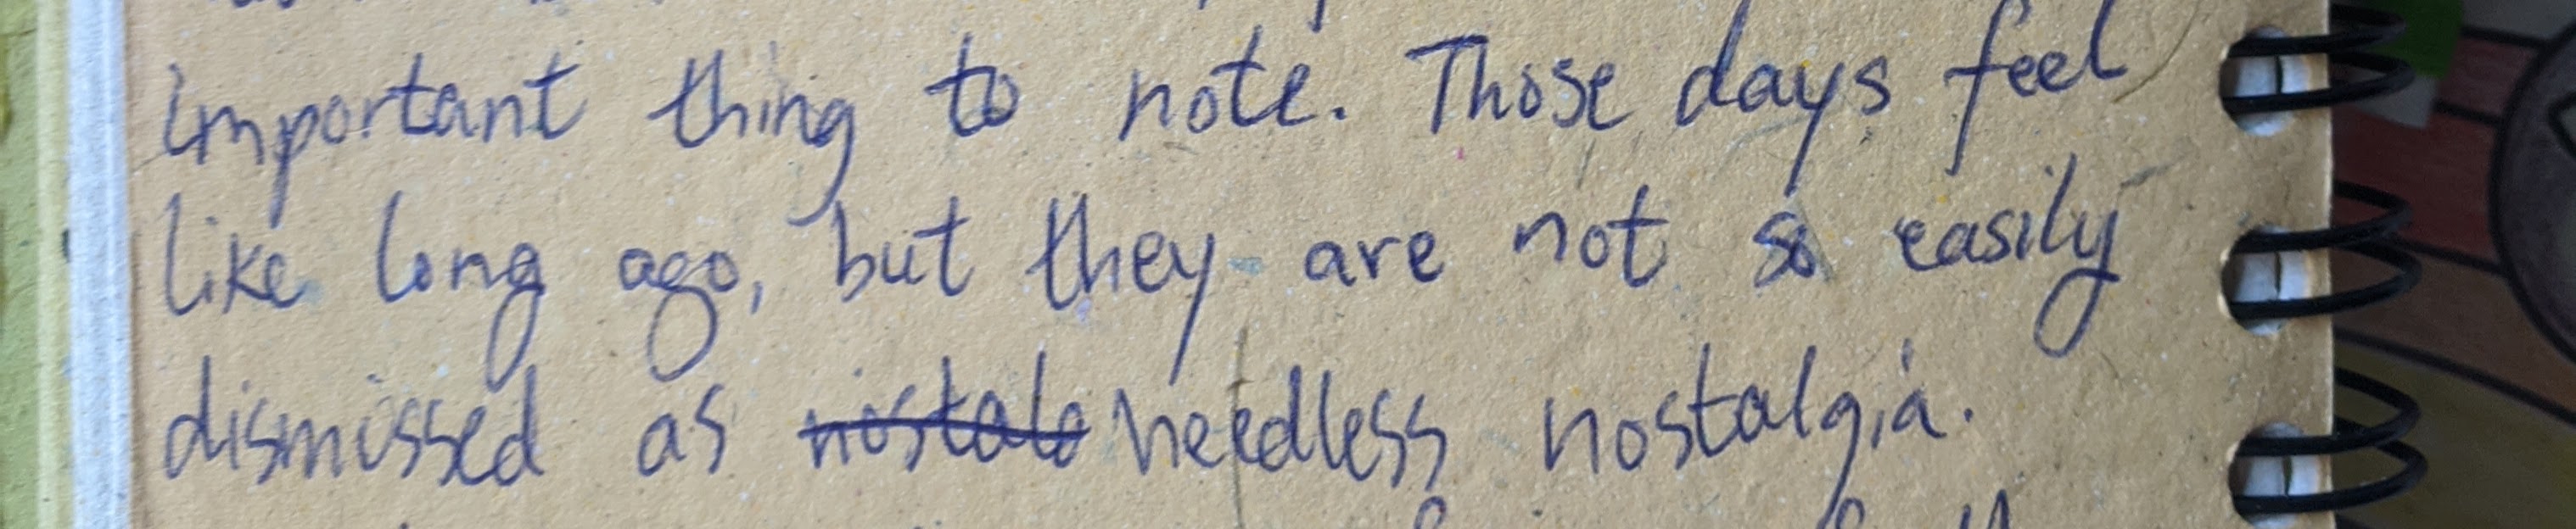 important thing to note. Those days feel
like long ago, but they are not so easily
dismissed as needless nostalgia.